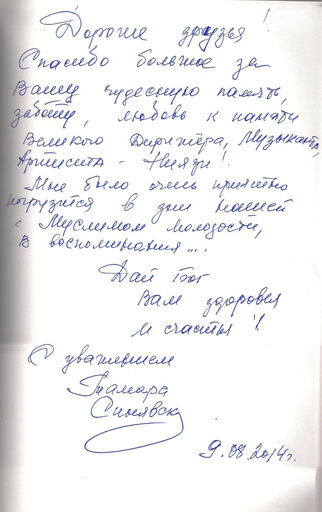 Дорогие друзья!
Спасибо большое за
Вашу чудесную память,
заботу, любовь к памяти
Великого Дирижёра, Музыканта,
Артиста - Ниязи!
Мне было очень приятно
погрузится в дни нашей
с Муслимом молодости,
в воспоминания...
Дай Бог
Вам здоровья
и счастья!
С уважением
Тамара
Синявск
9.08.2014г.